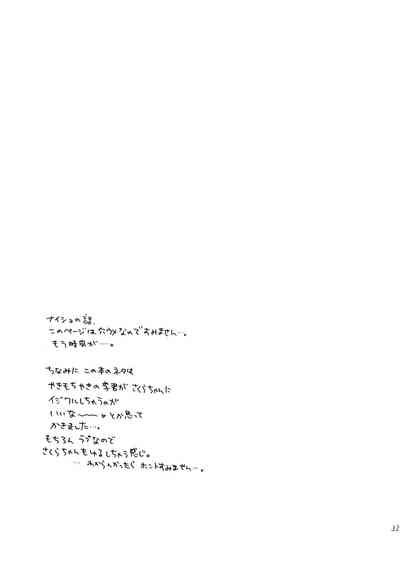 ナイショの話。
このページは穴ウメなのですみません…。
もう時間が…。
ちなみに この本のネタは
やきもちやきの李君が さくらちゃんに
イジワルしちゃうのが
いいな〜〜♥とか思って
かきました…。
もちろん ラブなので
さくらちゃんもゆるしちゃう感じ。
… わからなかったら ホントすみません…。